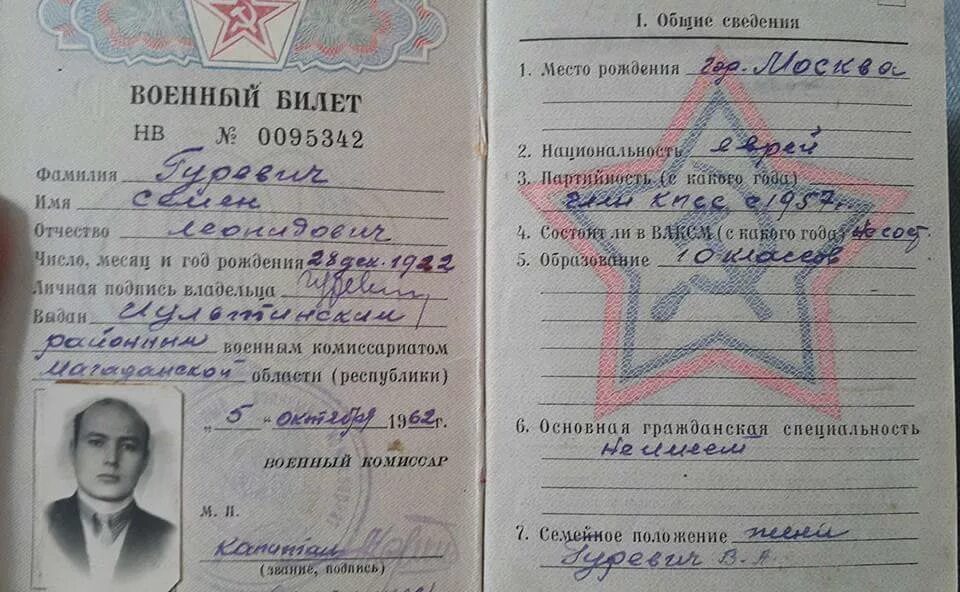 ВОЕННЫЙ БИЛЕТ
НВ № 0095342
Фамилия Гуревич
Имя Семен
Отчество Леонидович
Число, месяц и год рождения 28 дек. 1922
Личная подпись владельца Гуревич
Выдан Иультинским
районным военным комиссариатом
Магаданской области (республики)
„ 5 " октября 1962 г.
ВОЕННЫЙ КОМИССАР
М. П.
капитан
(звание, подпись)
I. Общие сведения
1. Место рождения гор. Москва
2. Национальность еврей
3. Партийность (с какого года)
член КПСС с 1957 г.
4. Состоит ли в ВЛКСМ (с какого года) не сост.
5. Образование 10 классов
6. Основная гражданская специальность
не имеет
7. Семейное положение
Гуревич В. А.